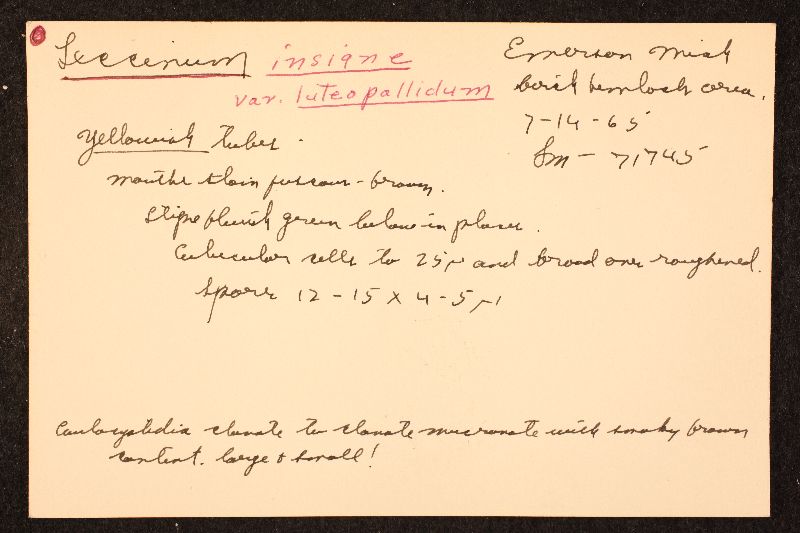 Leccinum insigne
var. luteopallidum
Emerson Mich
birch hemlock area.
7-14-65
Sm - 71745
Yellowish tubes.
mouths stain fuscous-brown.
Stipe bluish green below in places.
Cuticular cells to 25µ and broad ones roughened.
Spores 12-15 x 4-5µ
Caulocystidia clavate to clavate mucronate with smoky brown
content. large & small!